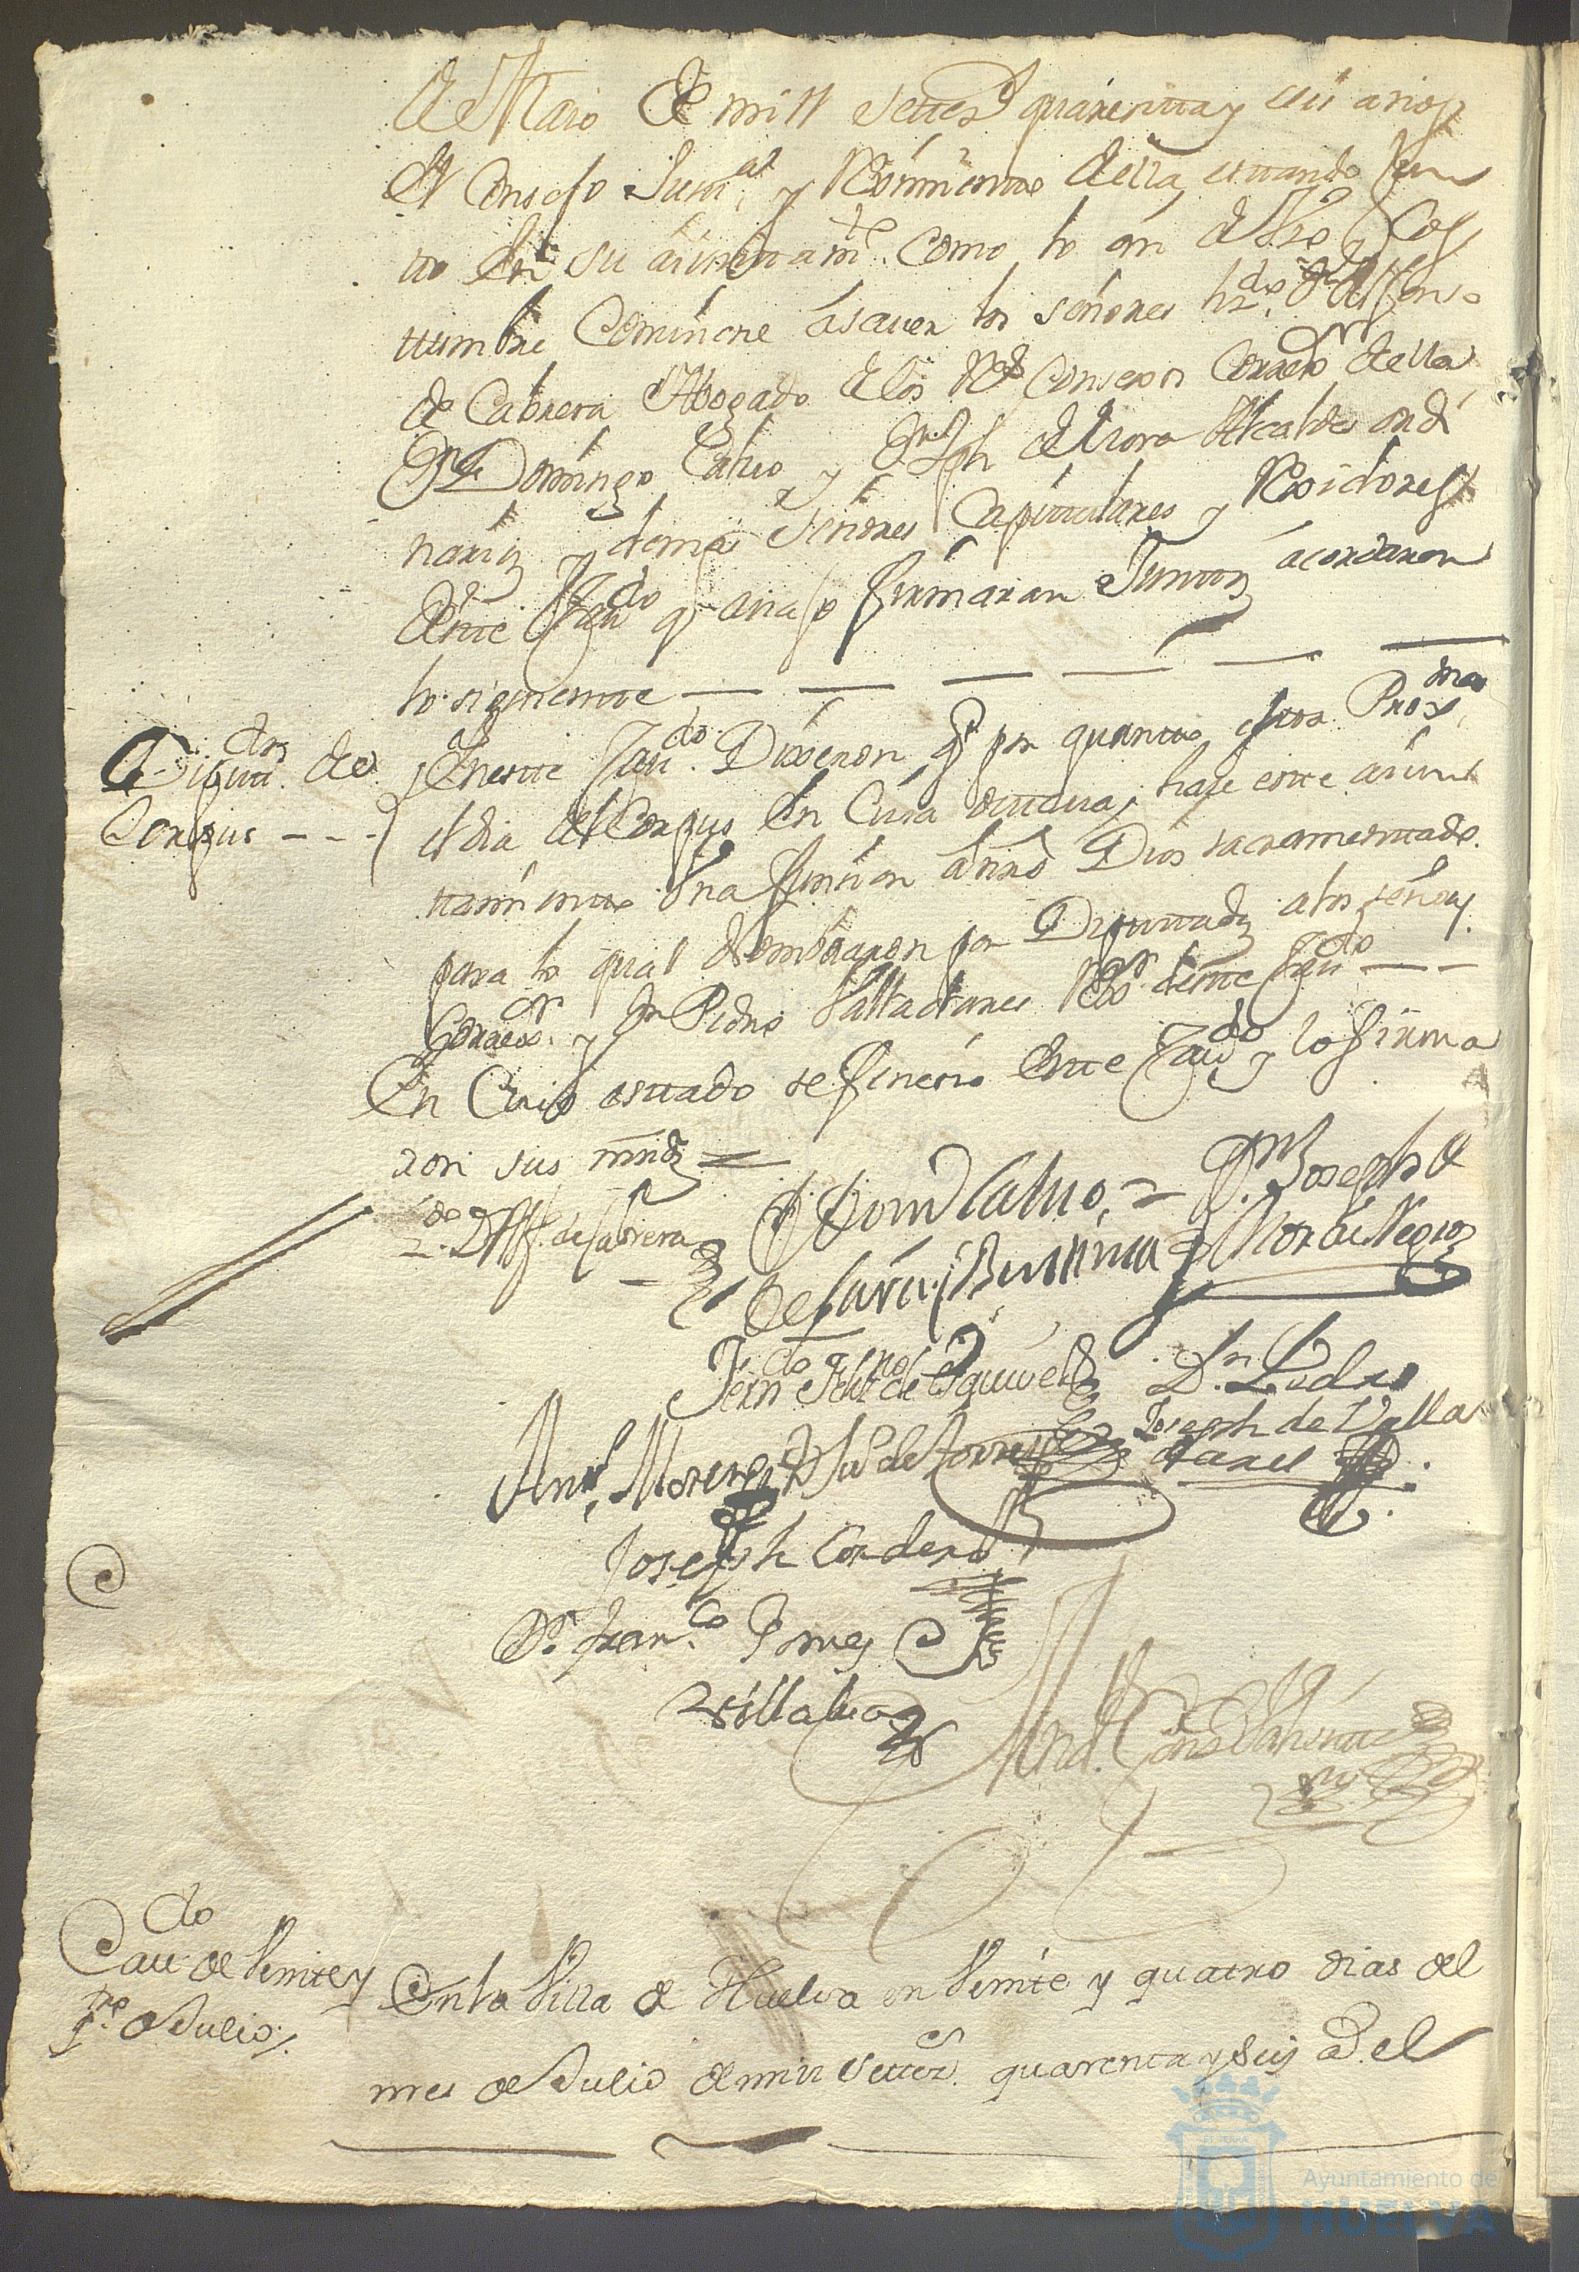 de Maio de mill settez.s quarentta y seis años
el Consejo Justt.a y Reximiento della, esttando jun
tto en su aiunttam.to como lo an de Uso y Cos
ttumbre Combiene asauer los señores lz.do Dn Alfonso
de Cabrera Abogado de los R.s Consexos Correxr della
Dn Domingo Calvo y Dn Jph de Mora Alcaldes ordi
narios y demas señores Capittulares y Rexidores
deste Cau.do q. auajo firmaran Junttos acordaron
lo siguientte
Diputt.dos de
Corpus
En estte Cau.do Dixeron q.e por quantto esttá Prox.mo
el dia del Corpus En Cuia octtaua, haze este aiun
ttamientto Una funsion a nro Dios sacramenttado.
para lo qual Nombraron por Diputtados a los señores
Correx.or y Dn Pedro Valladares Rex.or deste Cau.do
En Cuio esttado se fenesio Estte Cau.do y lo firma
ron sus mrds =
L.do D Alf.o de Cabrera
Dn Dom.o Calvo
Dn Joseph de
Mora Negro
de Garcia
Fern.do de Esquivel
Dn Pedro
Joseph de Valla
dares
Ant.o Moreno
de Torres
Joseph Cordero
Dn Fran.co Gomez
Villalua
And.
Cau.do de Veinte y
q.tro de Julio
En la Villa de Huelva en Veinte y quatro dias del
mes de Julio de mill settez.s quarenta y seis a.s el
Ayuntamiento de
HUELVA